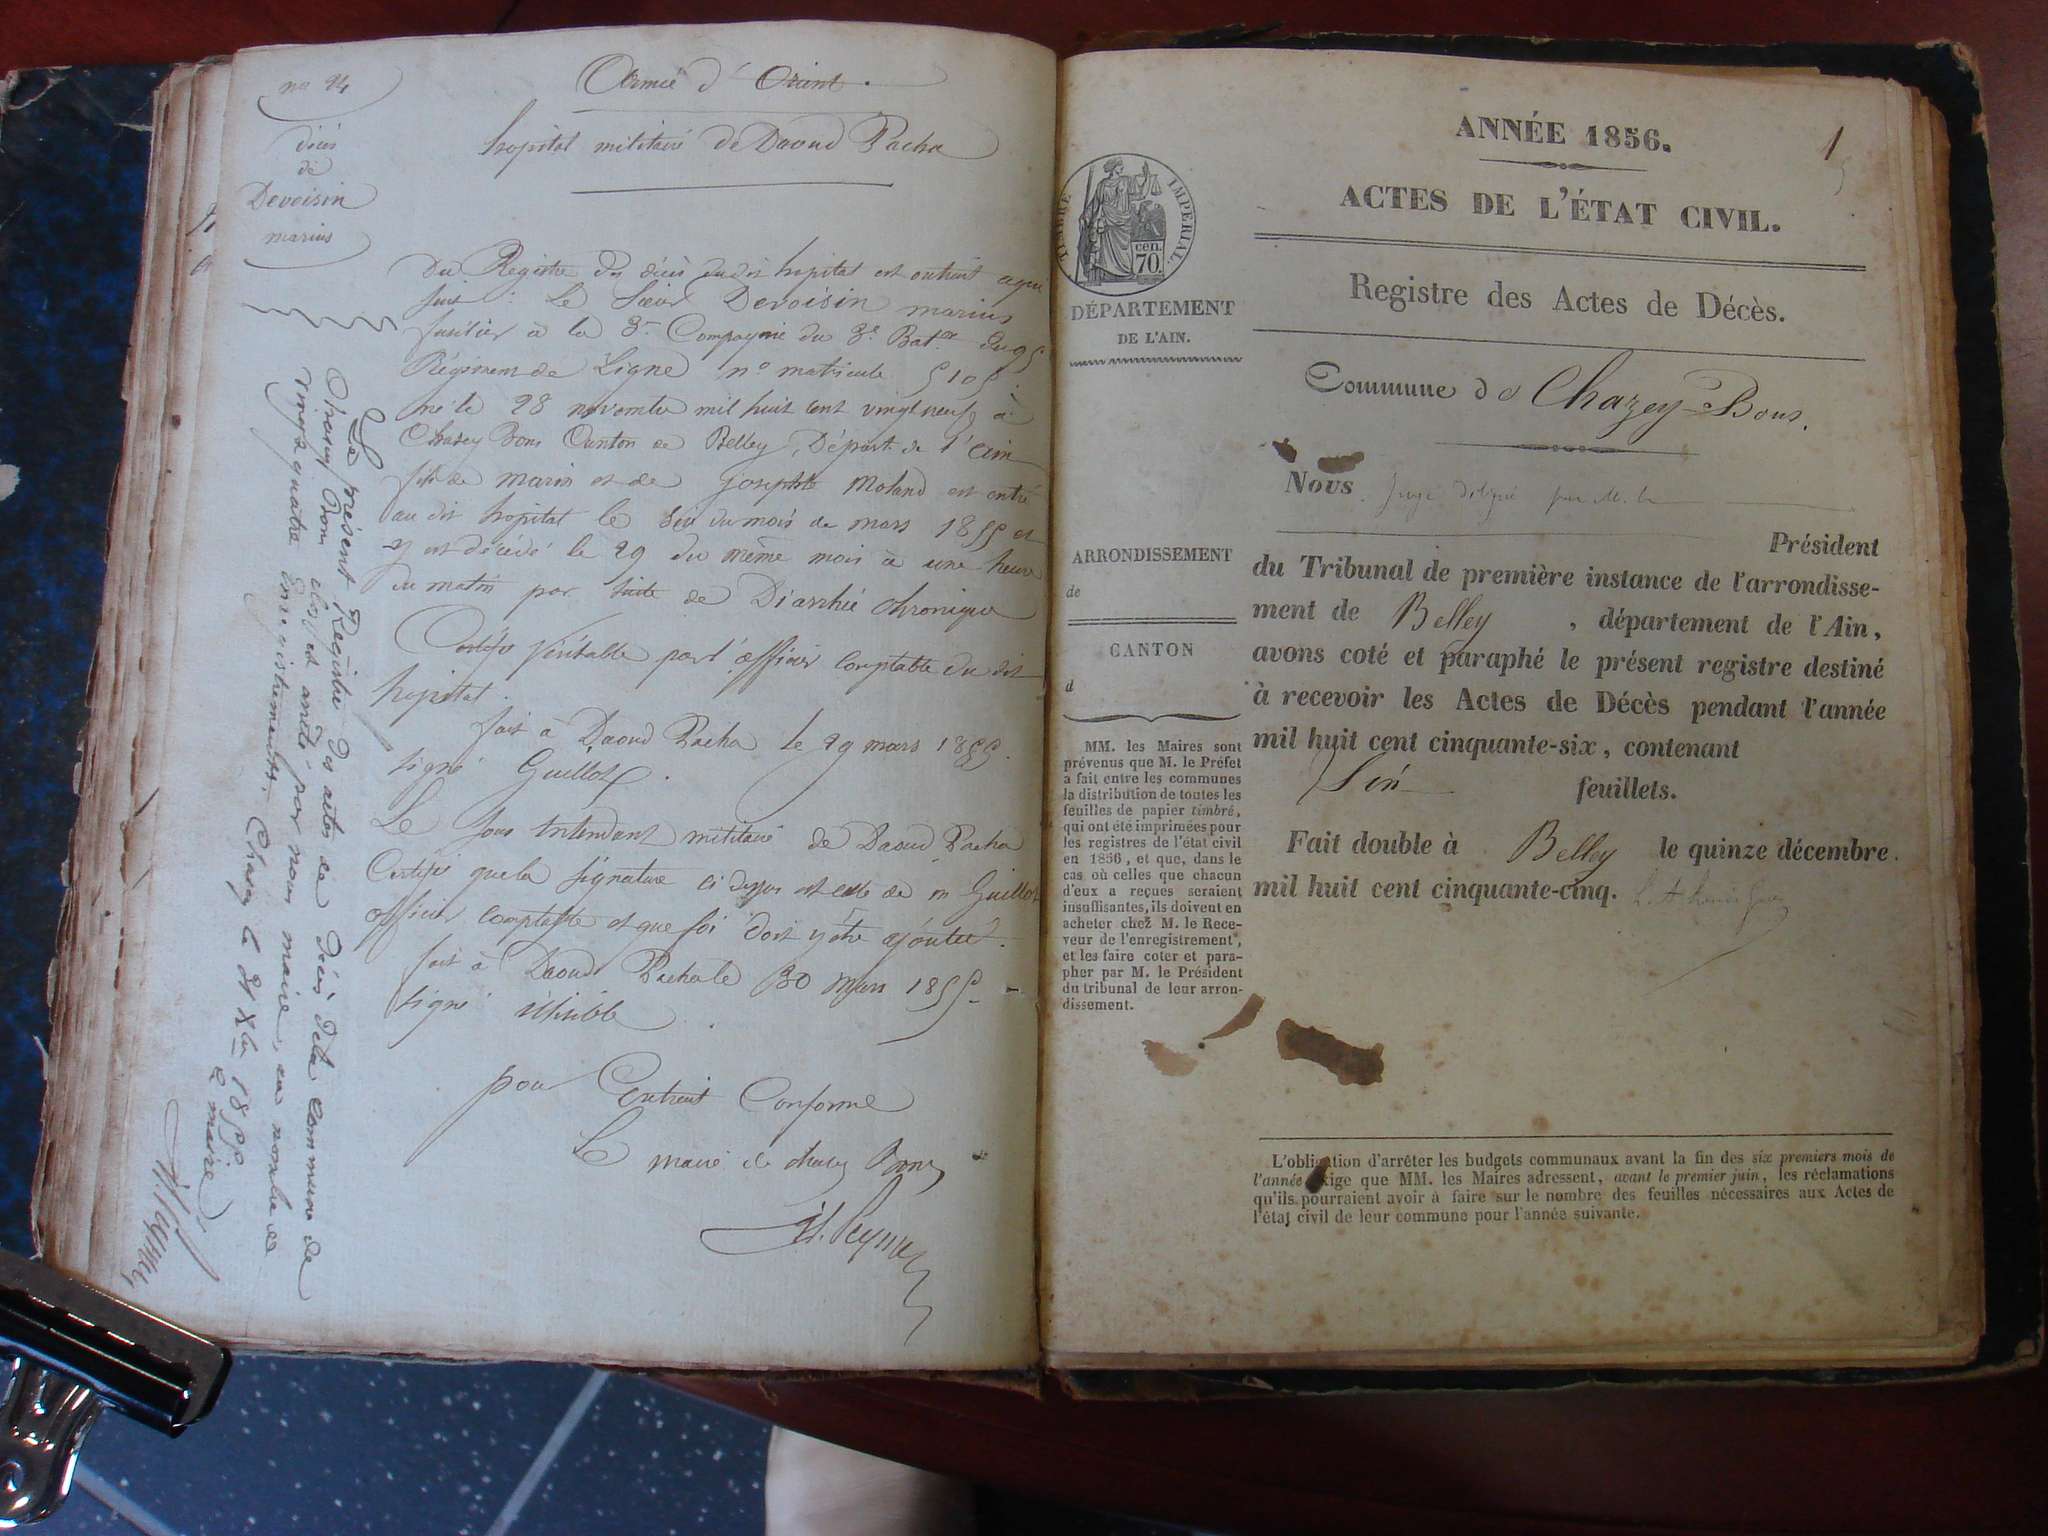 no 24
décès
de
Devoisin
marius
Armée d'Orient.
hopital militaire de Daoud Pacha
Du Registre des décès dudit hopital est extrait a qui
suit : Le Sieur Devoisin marius
fusilier à la 3e Compagnie du 3e Baton du 95
Régiment de Ligne no matricule 5105.
né le 28 novembre mil huit cent vingt neuf à
Chazey Bons Canton de Belley, Départ. de l'ain
fils de marin et de josephte Moland est entré
au dit hopital le six du mois de mars 1855 et
y est décédé le 29 du même mois à une heure
du matin par suite de Diarrhée chronique
Certifié véritable par l'officier comptable du dit
hopital.
fait à Daoud Pacha le 29 mars 1855.
signé Guillot.
Le sous intendant militaire de Daoud Pacha
Certifie que la signature ci dessus est celle de m Guillot
officier comptable et que foi doit y être ajoutée.
fait à Daoud Pacha le 30 Mars 1855
signé illisible
pour Extrait Conforme
Le maire de chazey Bons
Le présent Registre des actes de Décès de la commune de
Chazey Bons clos et arrêté par nous maire, au nombre de
vingt quatre Enregistrements. Chazey le 31 Xbre 1855
Le maire
ANNÉE 1856.
1
ACTES DE L'ÉTAT CIVIL.
Registre des Actes de Décès.
TIMBRE IMPÉRIAL
cen.
70.
DÉPARTEMENT
DE L'AIN.
Commune de Chazey-Bons.
Nous Juge délégué par M. le
Président
du Tribunal de première instance de l'arrondisse-
ment de Belley, département de l'Ain,
avons coté et paraphé le présent registre destiné
à recevoir les Actes de Décès pendant l'année
mil huit cent cinquante-six, contenant
feuillets.
Fait double à Belley le quinze décembre
mil huit cent cinquante-cinq.
ARRONDISSEMENT
de
CANTON
d
MM. les Maires sont
prévenus que M. le Préfet
a fait entre les communes
la distribution de toutes les
feuilles de papier timbré,
qui ont été imprimées pour
les registres de l'état civil
en 1856, et que, dans le
cas où celles que chacun
d'eux a reçues seraient
insuffisantes, ils doivent en
acheter chez M. le Rece-
veur de l'enregistrement,
et les faire coter et para-
pher par M. le Président
du tribunal de leur arron-
dissement.
L'obligation d'arrêter les budgets communaux avant la fin des six premiers mois de
l'année exige que MM. les Maires adressent, avant le premier juin, les réclamations
qu'ils pourraient avoir à faire sur le nombre des feuilles nécessaires aux Actes de
l'état civil de leur commune pour l'année suivante.